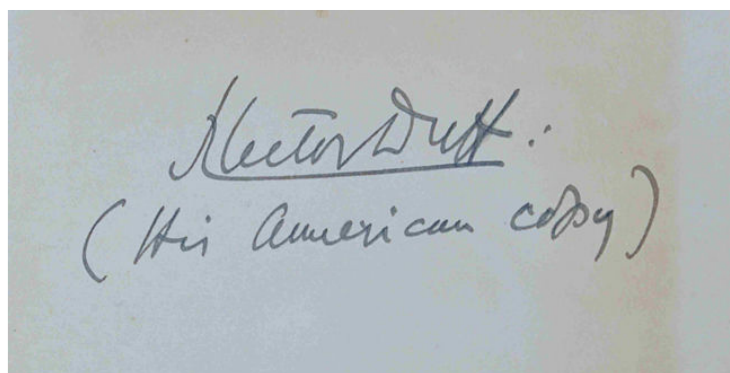 Hector Duff.
(His American copy)